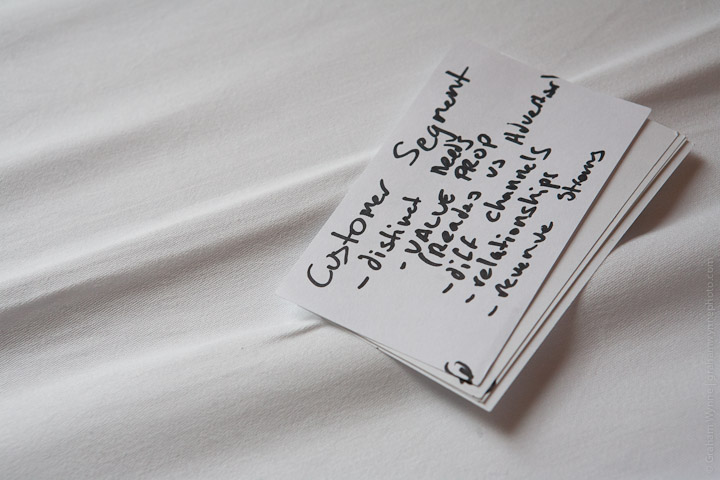 Customer Segment
- distinct needs
- VALUE PROP
(Reader vs Advertiser)
- diff channels
- relationships
- revenue streams